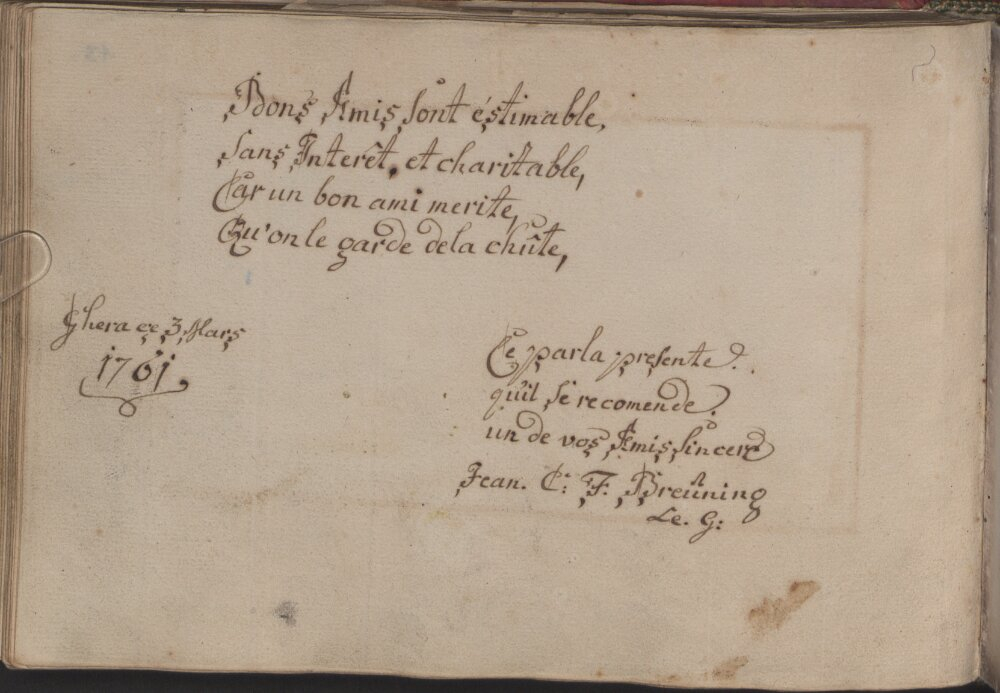 Bons Amis sont éstimable,
sans Interêt, et charitable,
Car un bon ami merite,
Qu'on le garde dela chûte,
Ghera ce 3 Mars
1761
Ce parla presente
quil se recomende
un de vos Amis sincere
Jean. C: F. Breüning
Le. G: